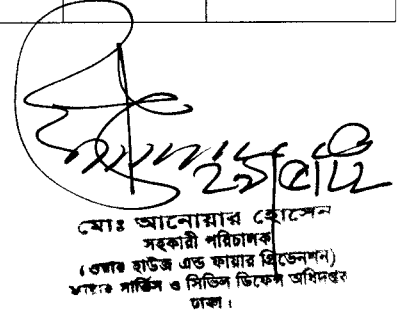 মোঃ আনোয়ার হোসেন
সহকারী পরিচালক
(ওয়ার হাউজ এন্ড ফায়ার প্রিভেনশন)
ফায়ার সার্ভিস ও সিভিল ডিফেন্স অধিদপ্তর
ঢাকা।